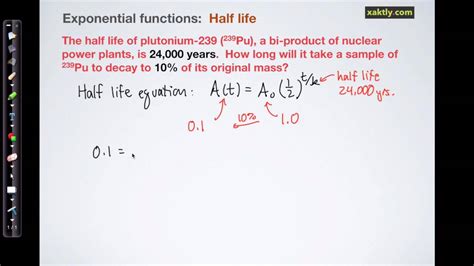 Exponential functions: Half life
xaktly.com
The half life of plutonium-239 (²³⁹Pu), a bi-product of nuclear
power plants, is 24,000 years. How long will it take a sample of
²³⁹Pu to decay to 10% of its original mass?
Half life equation: A(t) = A₀(1/2)^(t/k) half life
24,000 yrs.
0.1 10% 1.0
0.1 =
1 / 1